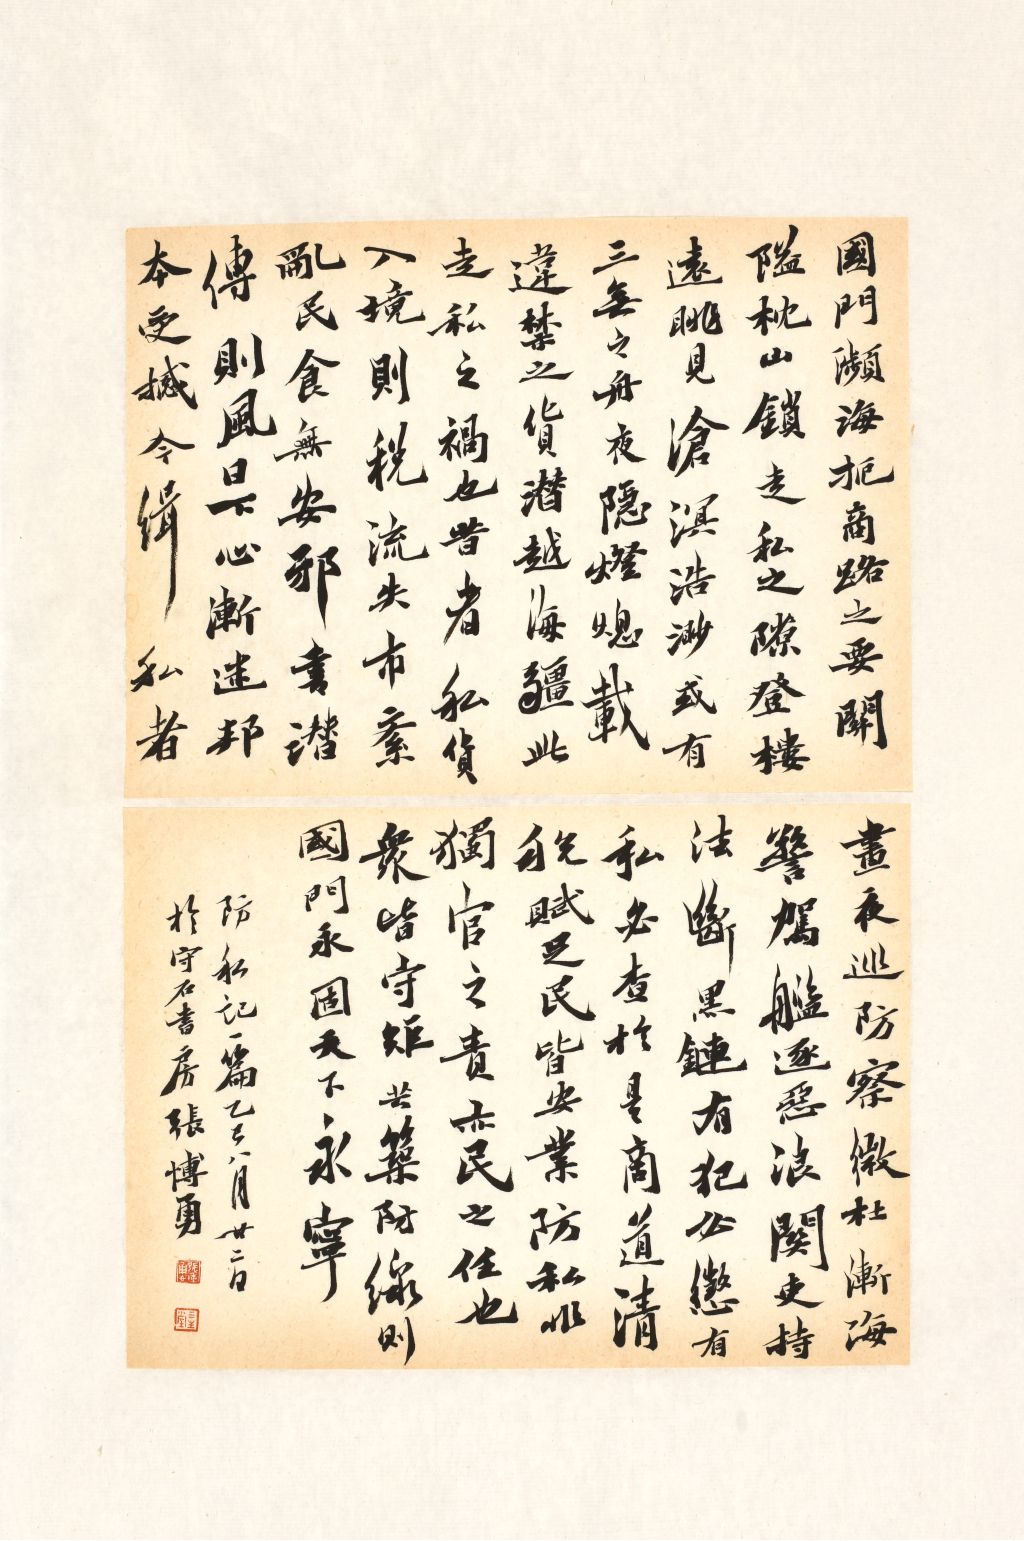 國門瀕海扼商路之要關
隘枕山鎖走私之隙登樓
遠眺見滄溟浩渺或有
三無之舟夜隱燈熄載
違禁之貨潛越海疆此
走私之禍也昔者私貨
入境則稅流失市紊
亂民食無安邪書潛
傳則風日下心漸迷邦
本受撼令緝私者
晝夜巡防察微杜漸海
警駕艦逐惡浪關吏持
法斷黑鏈有犯必懲有
私必查於是商道清
稅賦足民皆安業防私非
獨官之責亦民之任也
衆皆守矩共築防線則
國門永固天下永寧
防私記一篇乙巳八月廿二日
於守石書房張博勇